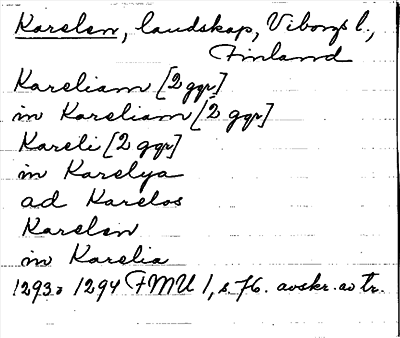 Karelen, landskap, Viborgs l.,
Finland
Kareliam [2 ggr]
in Kareliam [2 ggr]
Kareli [2 ggr]
in Karelya
ad Karelos
Karelen
in Karelia
1293 1294 FMU 1, s. 76. avskr. av tr.